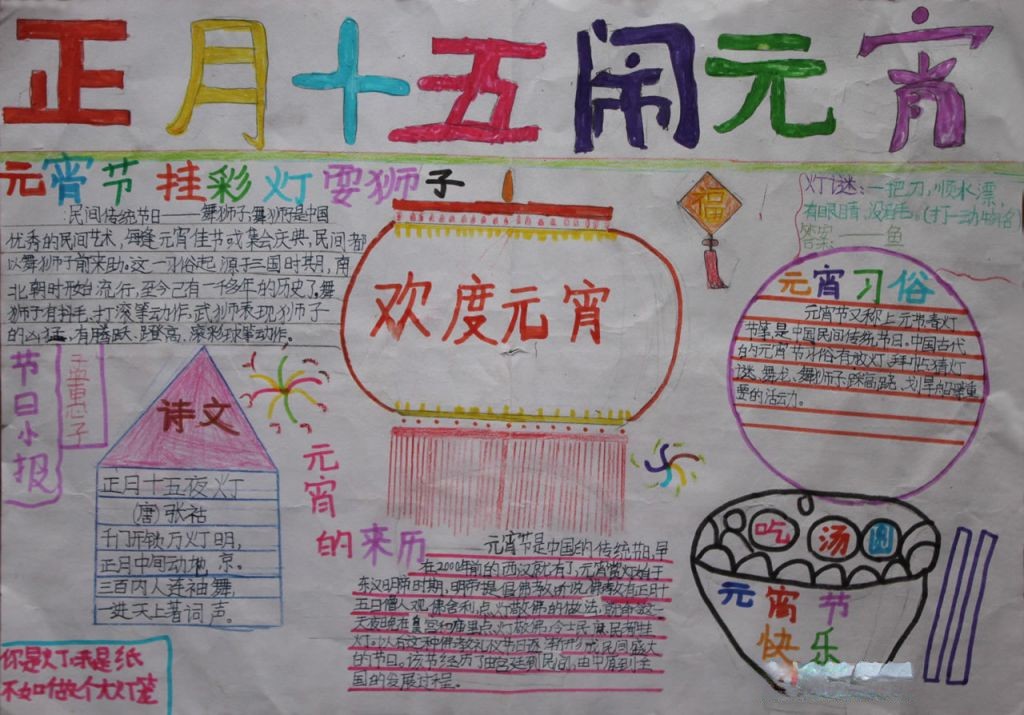 正月十五闹元宵
元宵节挂彩灯耍狮子
民间传统节日——舞狮子,舞狮是中国
优秀的民间艺术,每逢元宵佳节或集会庆典,民间都
以舞狮子前来助。这一习俗起源于三国时期,南
北朝时开始流行,至今已有一千多年的历史了,舞
狮子有抖毛、打滚等动作,武狮表现狮子
的凶猛,有腾跃、蹬高、滚彩球等动作。
灯谜:一把刀,顺水漂,
有眼睛,没眉毛。(打一动物名)
答案:——鱼
福
欢度元宵
元宵习俗
元宵节又称上元节春灯
节等,是中国民间传统节日。中国古代
的元宵节习俗有放灯、拜 猜灯
谜、舞龙、舞狮子、踩高跷、划旱船等重
要的活动。
节日小报
孟惠子
诗文
正月十五夜灯
(唐)张祜
千门开锁万灯明,
正月中间动地京。
三百内人连袖舞,
一进天上著词声。
元宵的来历
元宵节是中国的传统节日,早
在2000年前的西汉就有了,元宵赏灯始于
东汉明帝时期,明帝提倡佛教,听说佛教有正月十
五日僧人观佛舍利,点灯敬佛的做法,就命令这一
天夜晚在皇宫和庙里点灯敬佛,令士民 民都挂
灯。以后这种佛教礼仪节日逐渐形成民间盛大
的节日。该节经历了由宫廷到民间,由中原到全
国的发展过程。
吃汤圆
元宵节
快乐
你是火丁我是纸
不如做个大灯笼